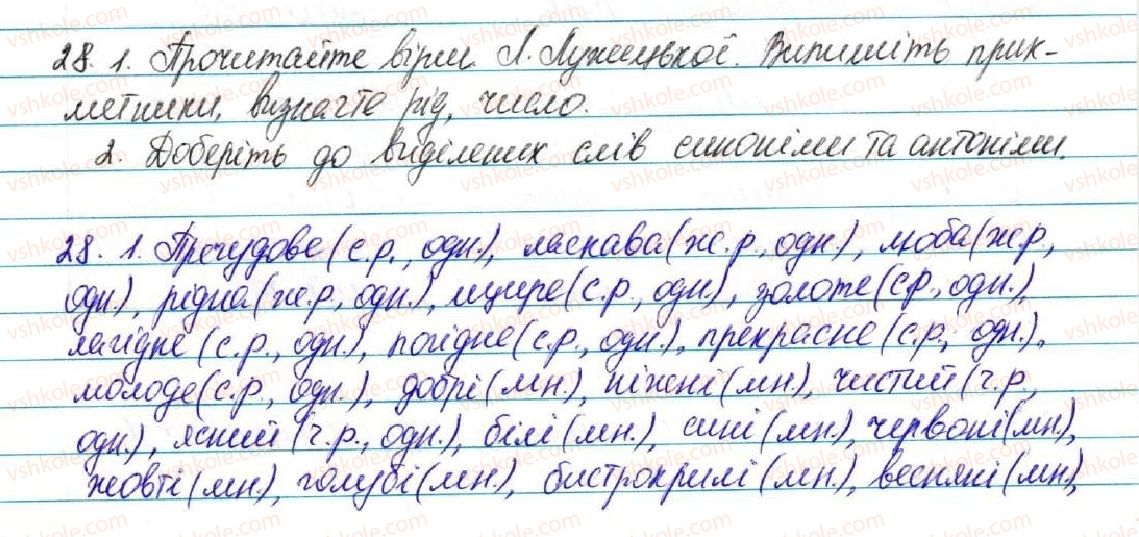 28. 1. Прочитайте вірш Л. Лужицької. Випишіть прик-
метники, визначте рід, число.
2. Доберіть до виділених слів синоніми та антоніми.
28. 1. Пречудове (с.р., одн.), ласкава (ж.р., одн.), люба (ж.р.,
одн.), рідна (ж.р., одн.), щире (с.р., одн.), золоте (с.р., одн.),
лагідне (с.р., одн.), погідне (с.р., одн.), прекрасне (с.р., одн.),
молоде (с.р., одн.), добрі (мн.), ніжні (мн.), чистий (ч.р.,
одн.), ясний (ч.р., одн.), білі (мн.), сині (мн.), червоні (мн.),
жовті (мн.), голубі (мн.), бистрокрилі (мн.), весняні (мн.),